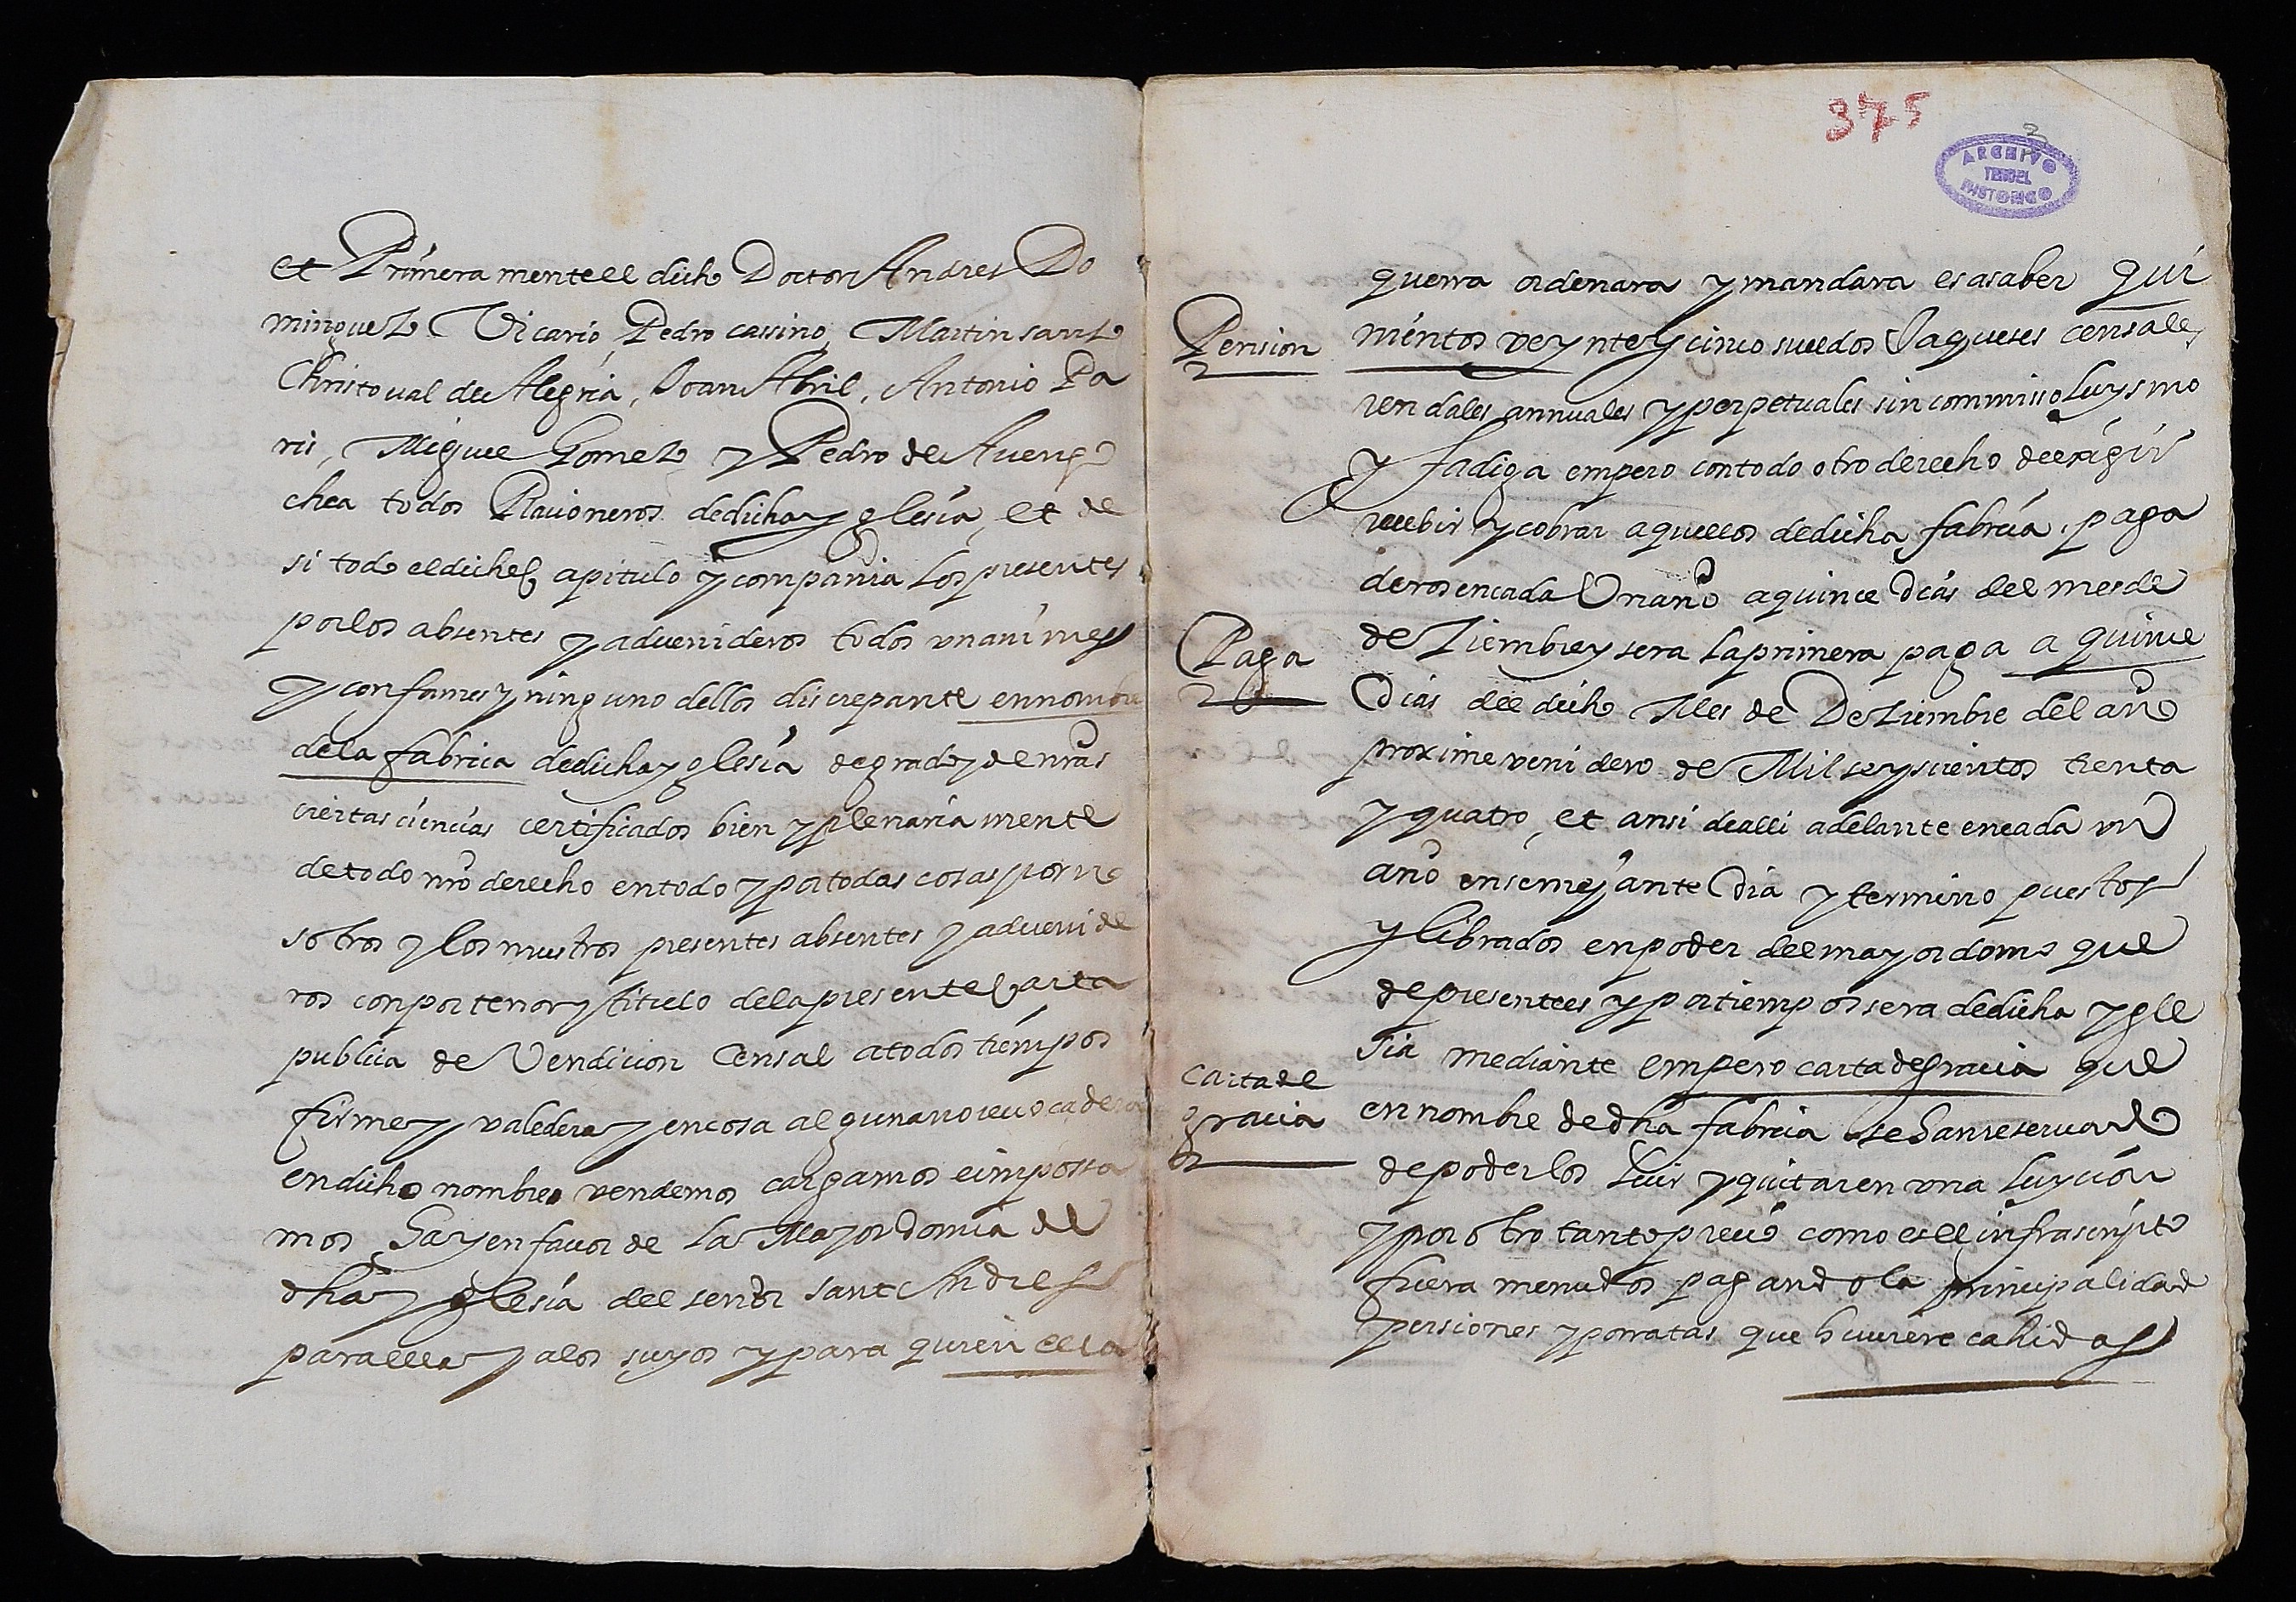 et Primeramente el dicho Doctor Andres Do
minguez Vicario, Pedro cassino, Martin sanz
Christoual de Alegria, Joan Abril, Antonio Pa
ris, Miguel Gomez y Pedro de Aueng
chea todos Racioneros de dicha yglesia, et de
si todo el dicho Capitulo y compania los presentes
por los absentes y aduenideros todos vnanimes
y conformes y ninguno dellos discrepante en nombre
de la fabrica de dicha yglesia de grado y de nras
ciertas ciencias certificados bien y plenariamente
de todo nro derecho en todo y por todas cosas por no
sotros y los nuestros presentes absentes y aduenide
ros con por tenor y titulo de la presente Carta
publica de Vendicion Censal a todos tiempos
firme y valedera y en cosa alguna no reuocadera
en dicho nombre vendemos cargamos e imposa
mos Ha y en fauor de la Mayordomia de
dha yglesia del señor sant Andres
para ella y a los suyos y para quien ella
375
2
ARCHIVO
TERUEL
HISTORICO
querra ordenara y mandara es a saber qui
Pension
nientos veynte y cinco sueldos Jaqueses censales
rendales annuales y perpetuales sin commisso luysmo
y fadiga empero con todo otro derecho de exàgir
recebir y cobrar aquellos de dicha fabrica, paga
deros en cada Vn año a quince dias del mes de
Paga
deziembre y sera la primera paga a quince
Dias del dicho Mes de Deziembre del año
proxime venidero de Mil seyscientos trenta
y quatro, et ansi de alli adelante en cada vn
año en semejante Dia y termino puestos
y librados en poder del mayordomo que
de presente es y por tiempos sera de dicha ygle
sia mediante empero carta de gracia que
carta de
gracia
en nombre de dha fabrica se Han reseruado
de poder los luir y quitar en vna luycion
y por otro tanto precio como es el infrascripto
fuera menudos pagando la principalidad
pensiones y porratas que huuiere cahidas